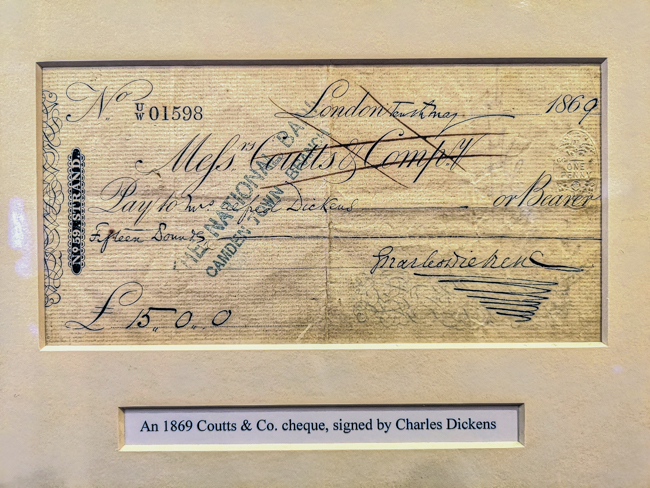 No U/W 01598
London tenth May 1869
Messrs Coutts & Compy
Pay to Mrs Alfred Dickens or Bearer
Fifteen Pounds
Charles Dickens
£ 15,, 0,, 0
No 59. STRAND.
THE NATIONAL BANK
CAMDEN TOWN BRANCH
An 1869 Coutts & Co. cheque, signed by Charles Dickens